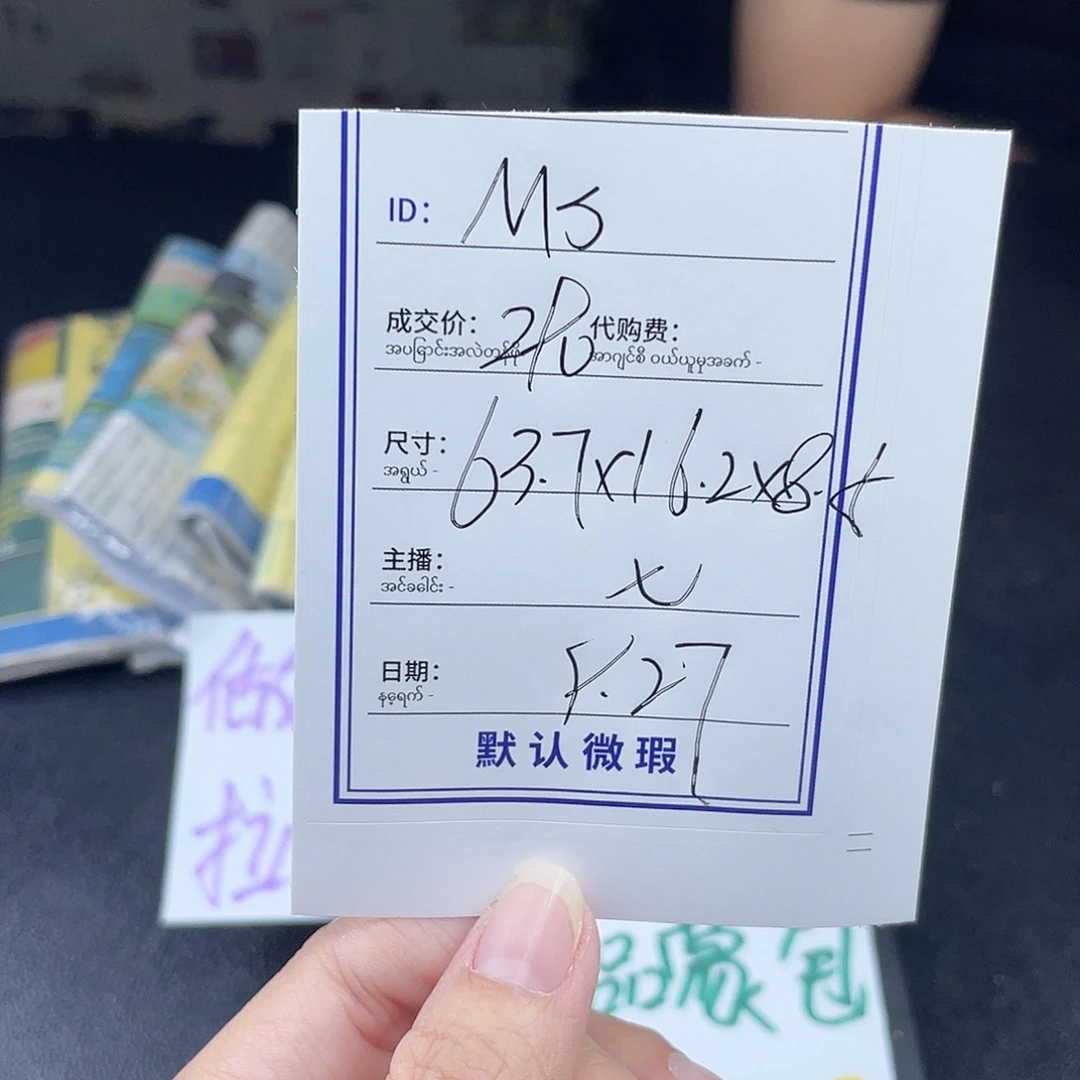 ID: MS
成交价: 代购费:
အပြောင်းအလဲတန်ဖိုး အာဂျင်စီ ဝယ်ယူမှုအခက် -
尺寸: 63.7x16.2x8.5
အရွယ် -
主播: x
အင်ခေါင်း -
日期: 5.27
နေ့ရက် -
默认微瑕
做
拉
品蒙包